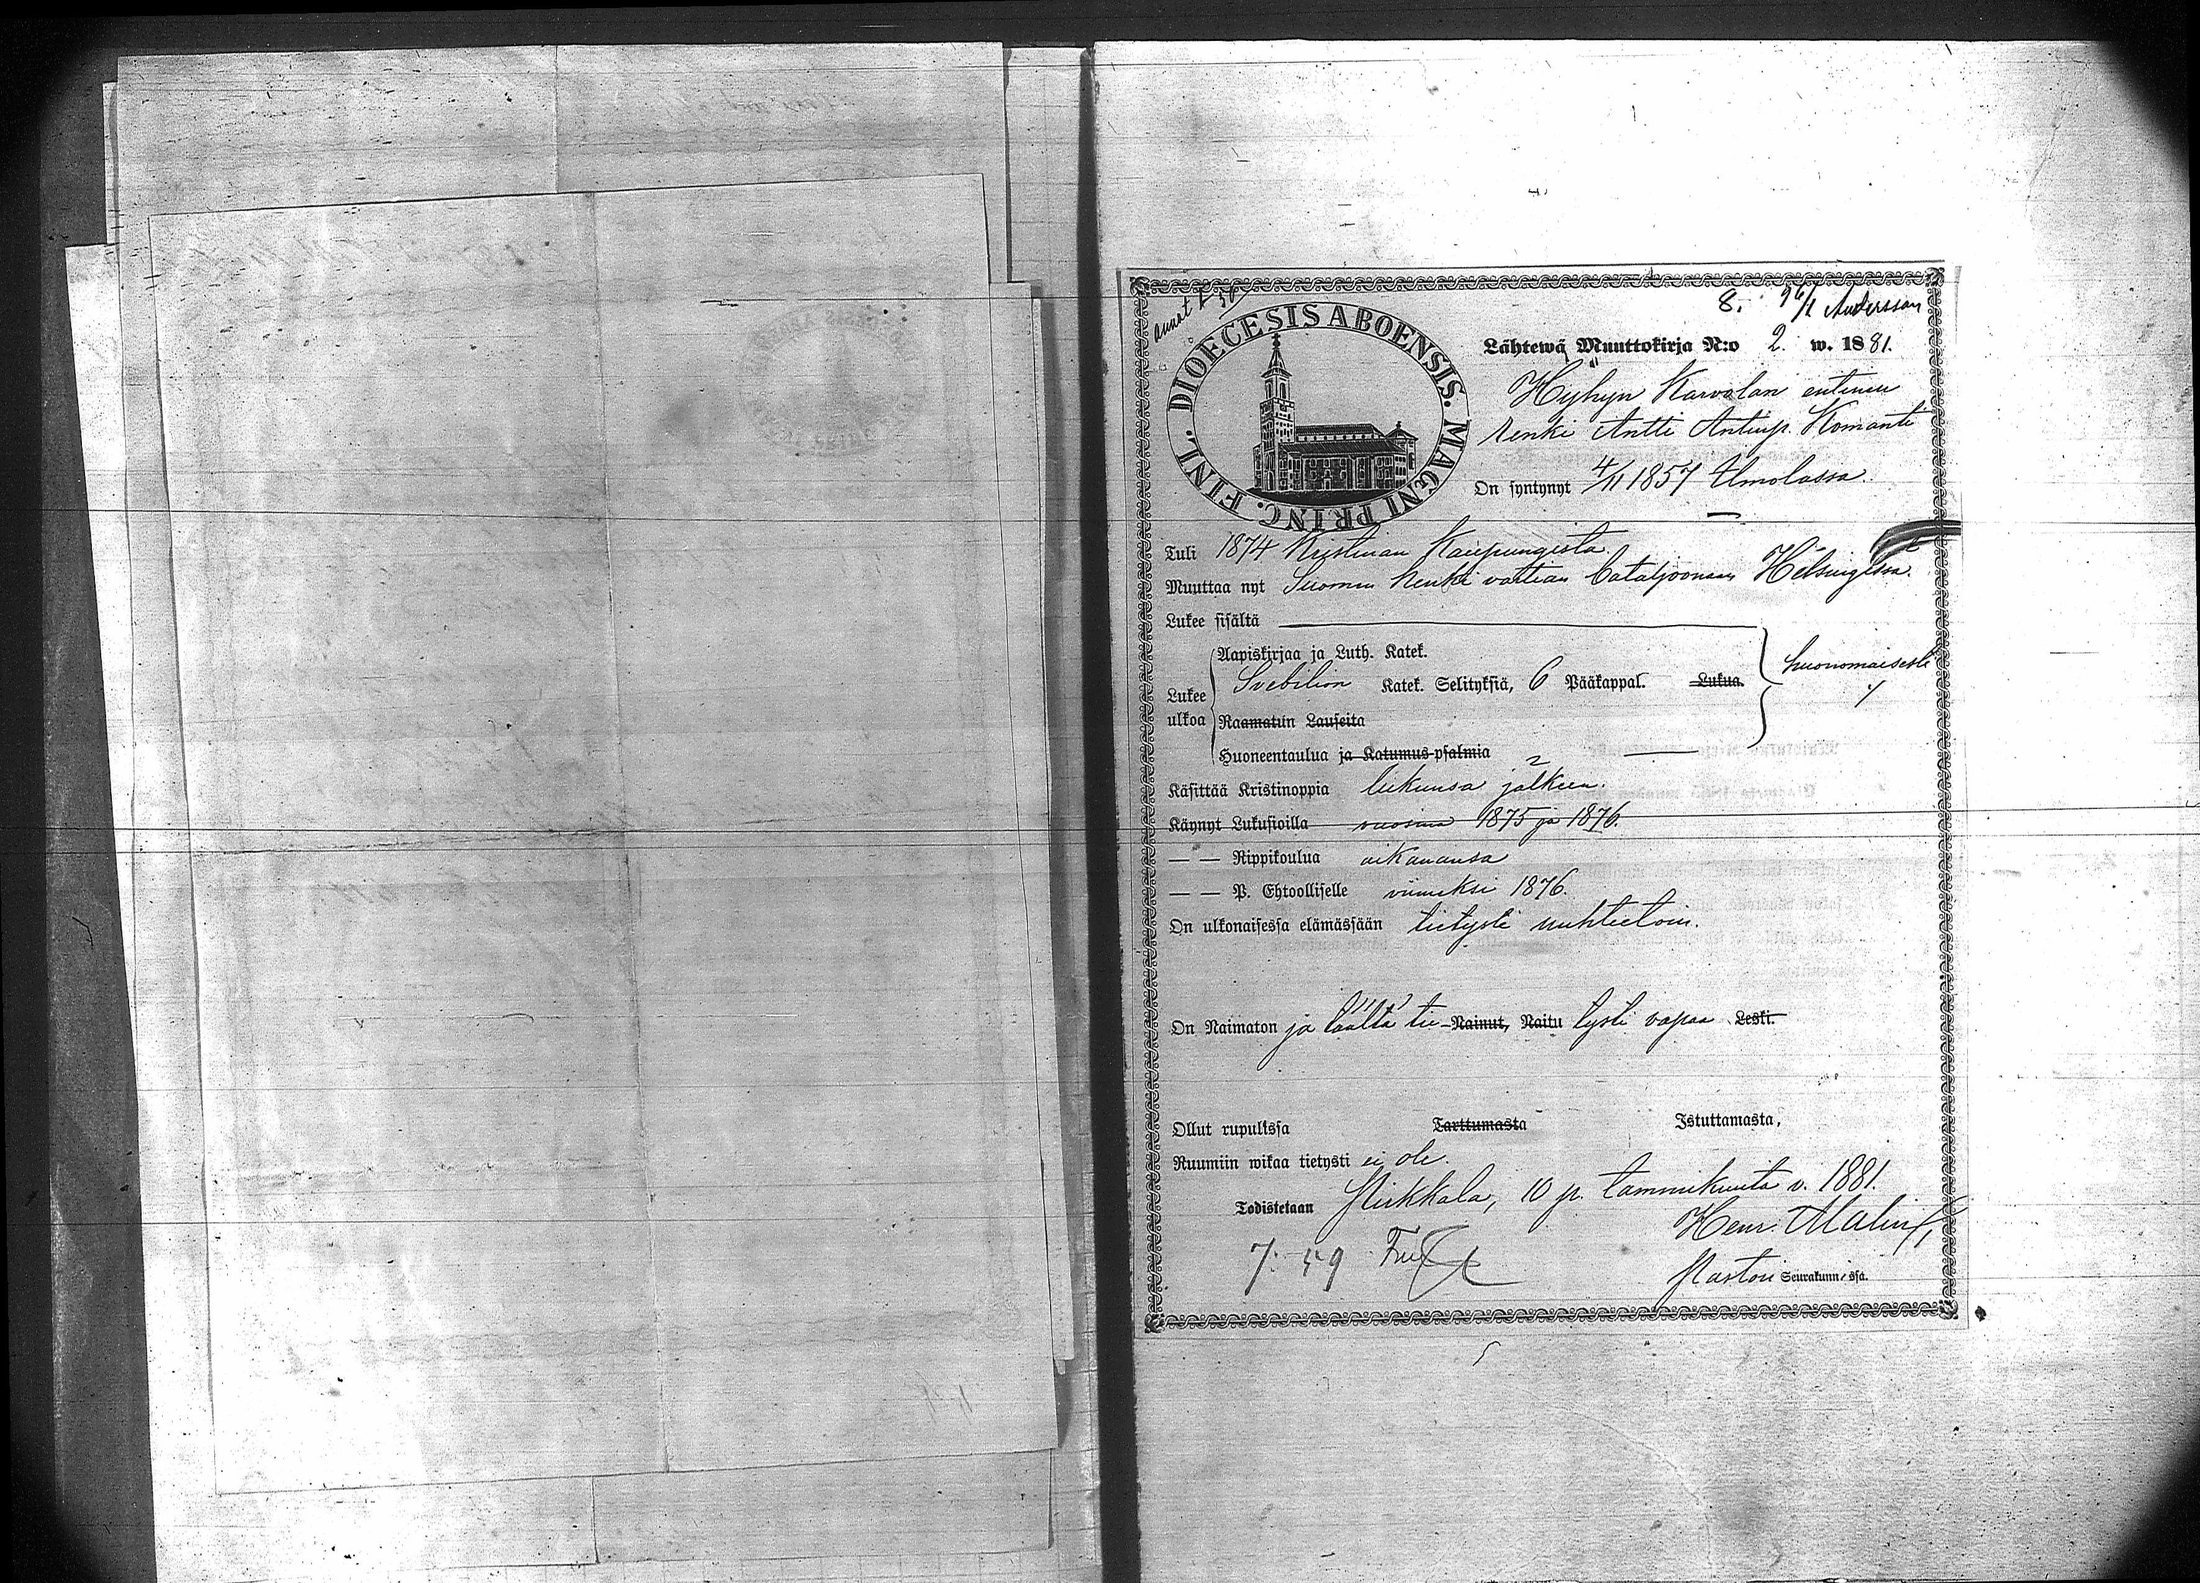 8. 26/1 Andersson
DIOECESIS ABOENSIS. MAGNI PRINC. FINL.
Lähtewä Muuttokirja N:o 2. w. 1881.
Hyhyn Karvolan entinen
renki Antti Antinp. Komanti
On syntynyt 4/11 1857 Ilmolassa.
Tuli 1874 Kristinan Kaupungista.
Muuttaa nyt Suomen henki vartian bataljoonaan Helsingissä.
Lukee sisältä
Aapiskirjaa ja Luth. Katek.
Lukee ulkoa Svebilion Katek. Selityksiä, 6 Pääkappal. Lukua. huonomaisesti
Raamatun Lauseita
Huoneentaulua ja Katumus-psalmia
Käsittää Kristinoppia lukunsa jälkeen.
Käynyt Lukusioilla vuosina 1875 ja 1876.
— — Rippikoulua aikanansa
— — P. Ehtoolliselle viimeksi 1876.
On ulkonaisessa elämässään tietysti nuhteetoin.
On Naimaton ja täältä tie- Nainut, Naitu tysti vapaa Leski.
Ollut rupulissa Tarttumasta Istuttamasta,
Ruumiin wikaa tietysti ei ole.
Todistetaan Pirkkala, 10 p. tammikuuta v. 1881.
Henr. Malin
7: 59
Pastori Seurakunnissa.